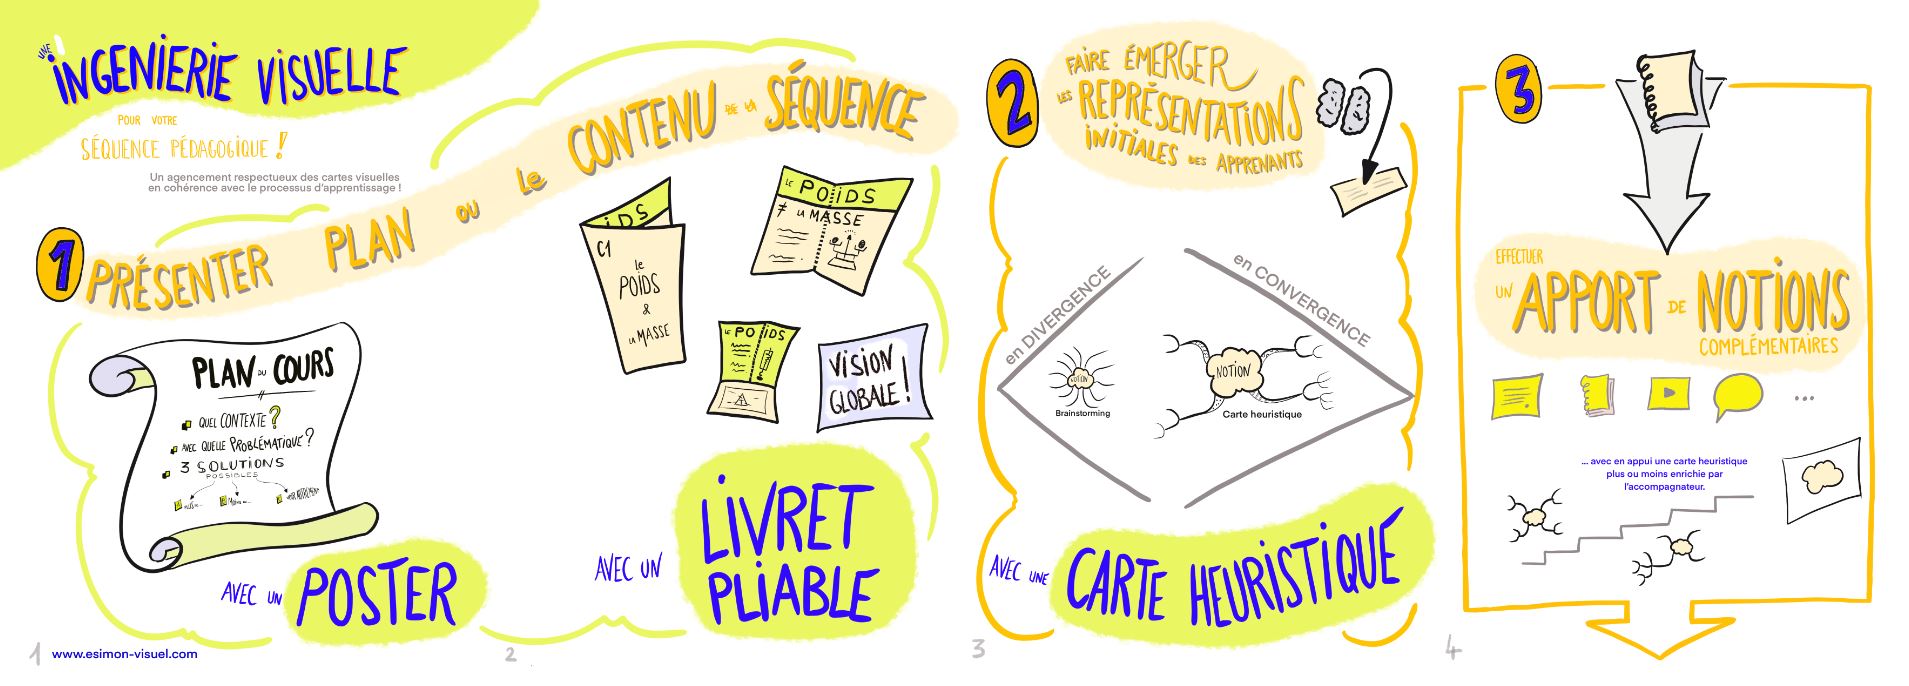 UNE
INGENIERIE VISUELLE
POUR VOTRE
SÉQUENCE PÉDAGOGIQUE !
Un agencement respectueux des cartes visuelles
en cohérence avec le processus d'apprentissage !
1 PRÉSENTER PLAN OU Le CONTENU DE LA SÉQUENCE
PLAN DU COURS
QUEL CONTEXTE ?
AVEC QUELLE PROBLÉMATIQUE ?
3 SOLUTIONS
POSSIBLES
AVEC UN POSTER
1 www.esimon-visuel.com
iDS
C1
le
POIDS
&
LA MASSE
LE POIDS
≠ LA MASSE
LE POIDS
VISION
GLOBALE !
AVEC UN
LIVRET
PLIABLE
2
2
FAIRE ÉMERGER
LES REPRÉSENTATIONS
INITIALES DES APPRENANTS
en DIVERGENCE
en CONVERGENCE
NOTION
Brainstorming
NOTION
Carte heuristique
AVEC UNE CARTE HEURISTIQUE
3
3
EFFECTUER
UN APPORT DE NOTIONS
COMPLÉMENTAIRES
...
... avec en appui une carte heuristique
plus ou moins enrichie par
l'accompagnateur.
4